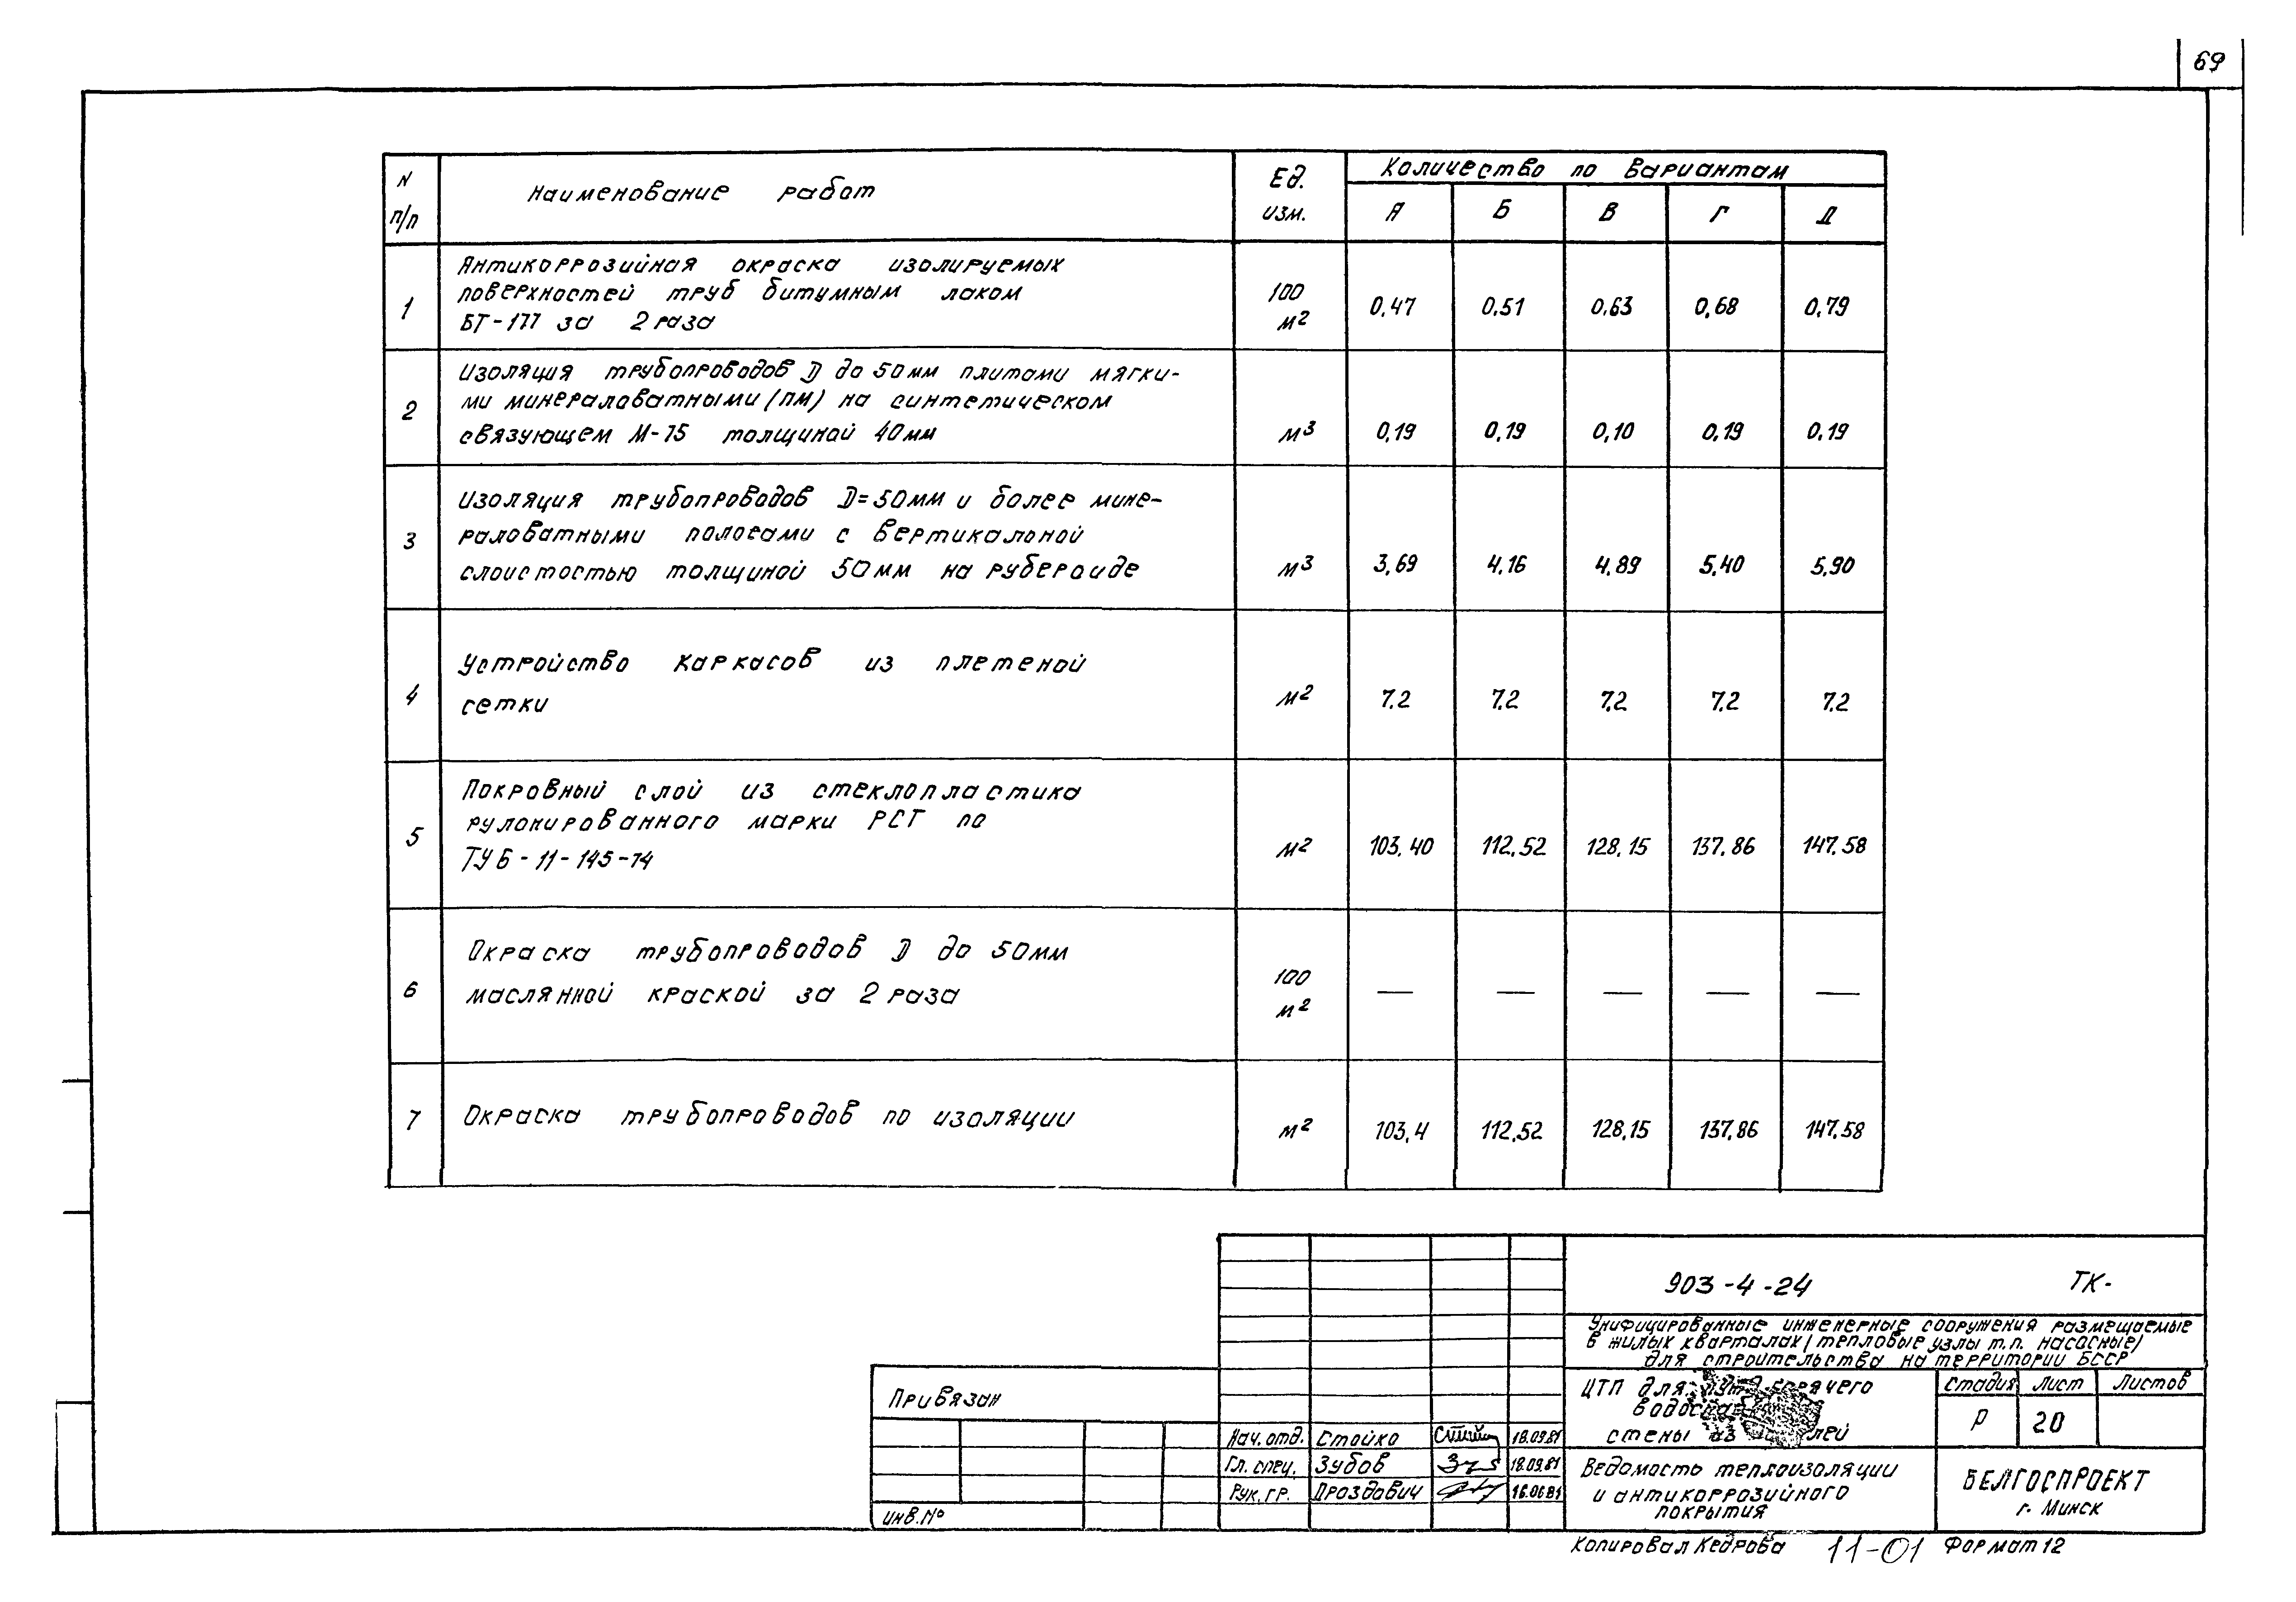 69
N п/п
Наименование работ
Ед. изм.
Количество по вариантам
А Б В Г Д
1
Антикоррозийная окраска изолируемых
поверхностей труб битумным лаком
БТ-177 за 2 раза
100 м2
0,47 0,51 0,63 0,68 0,79
2
Изоляция трубопроводов D до 50мм плитами мягки-
ми минераловатными (ПМ) на синтетическом
связующем М-75 толщиной 40мм
м3
0,19 0,19 0,10 0,19 0,19
3
Изоляция трубопроводов D=50мм и более мине-
раловатными полосами с вертикальной
слоистостью толщиной 50мм на рубероиде
м3
3,69 4,16 4,89 5,40 5,90
4
Устройство каркасов из плетеной
сетки
м2
7.2 7.2 7.2 7.2 7.2
5
Покровный слой из стеклопластика
рулонированного марки РСТ по
ТУ6-11-145-74
м2
103,40 112,52 128,15 137,86 147,58
6
Окраска трубопроводов D до 50мм
маслянной краской за 2 раза
100 м2
— — — — —
7
Окраска трубопроводов по изоляции
м2
103,4 112,52 128,15 137,86 147,58
903-4-24 ТК-
Унифицированные инженерные сооружения размещаемые
в жилых кварталах (тепловые узлы т.п. насосные)
для строительства на территории БССР
Привязан
ИНВ.№
Нач. отд. Стойко 18.09.81
Гл. спец. Зубов 18.09.81
Рук. гр. Дроздович 16.06.81
ЦТП для горячего
стены из
Стадия Лист Листов
Р 20
Ведомость теплоизоляции
и антикоррозийного
покрытия
БЕЛГОСПРОЕКТ
г. Минск
Копировал Кедрова 11-01 Формат 12